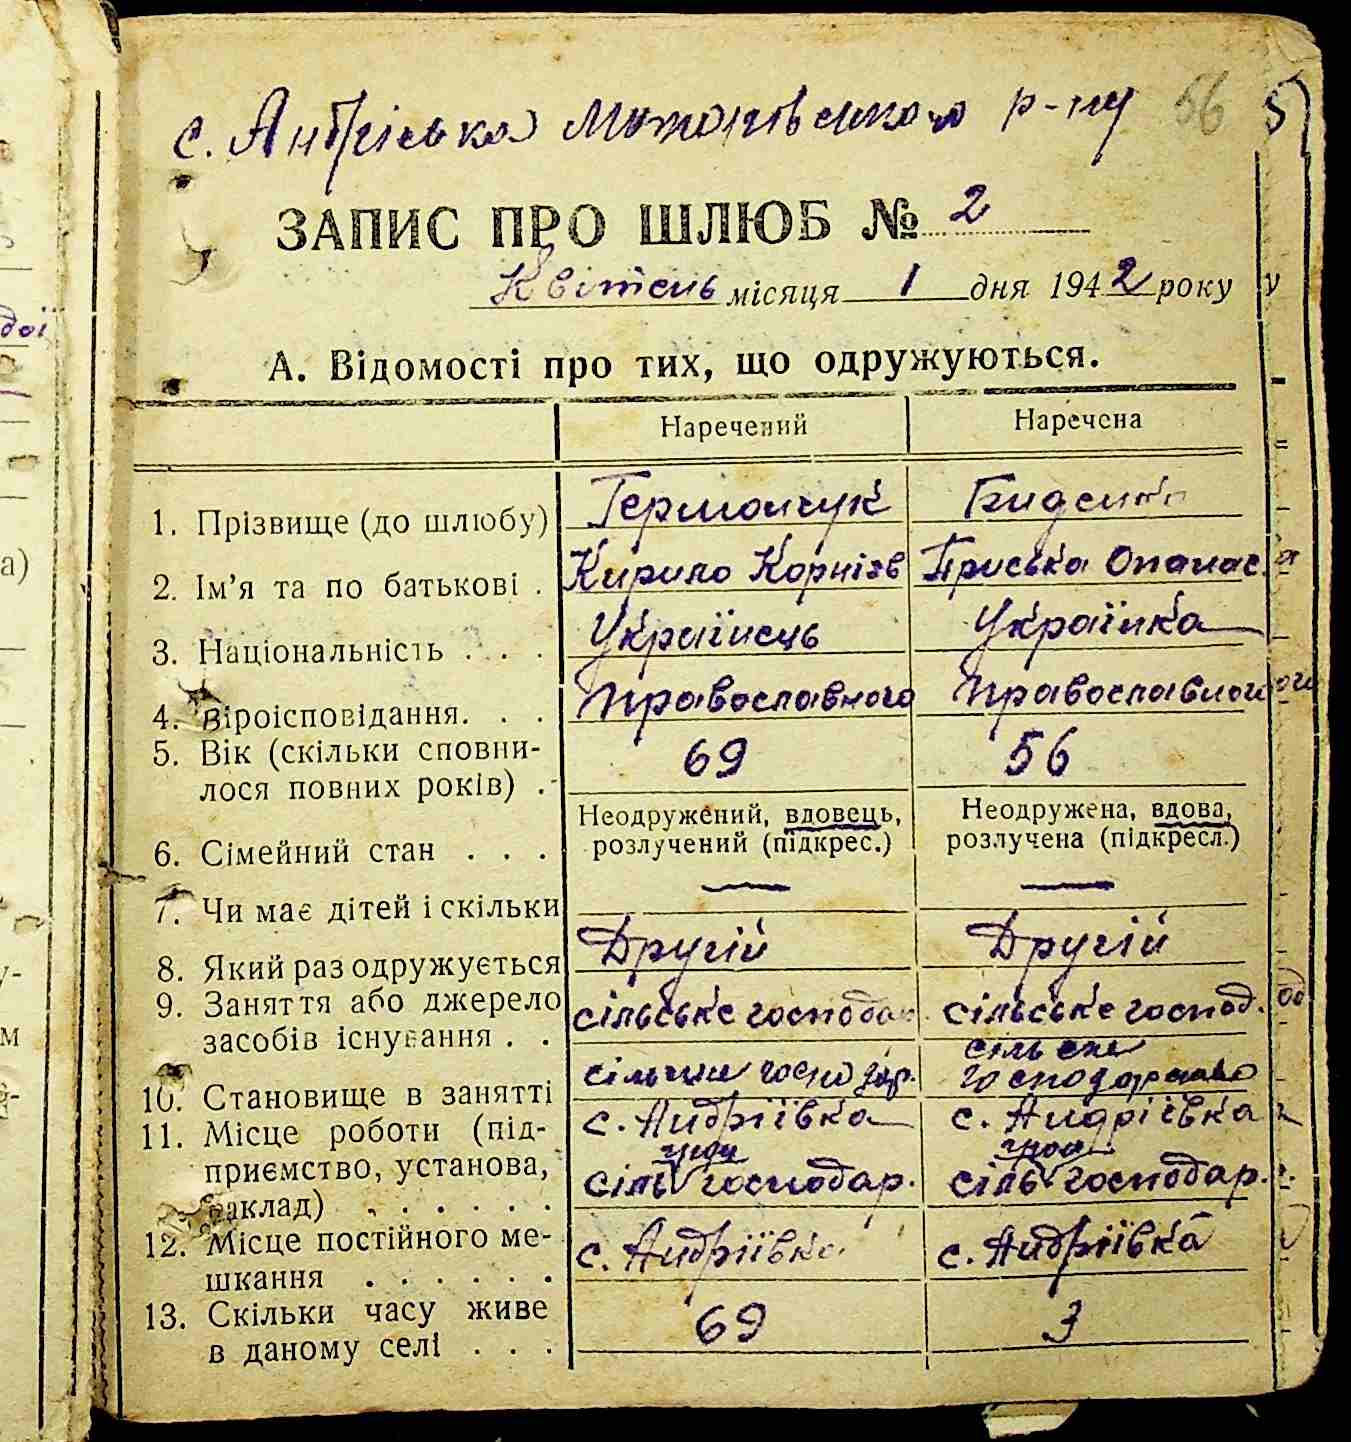 с. Андріівка Макарівського р-ну 56
ЗАПИС ПРО ШЛЮБ № 2
Квітень місяця 1 дня 1942 року
А. Відомості про тих, що одружуються.
Наречений Наречена
1. Прізвище (до шлюбу) Гермончук
2. Ім'я та по батькові . Кирило Корніїв Приська Опанас.
3. Національність . . . Українець Українка
4. Віроісповідання. . . Православного Православного
5. Вік (скільки сповни-
лося повних років) . 69 56
Неодружений, вдовець, Неодружена, вдова,
6. Сімейний стан . . . розлучений (підкрес.) розлучена (підкресл.)
7. Чи має дітей і скільки — —
8. Який раз одружується Другій Другій
9. Заняття або джерело
засобів існування . . сільське господар. сільське господ.
10. Становище в занятті господар. господарство
11. Місце роботи (під- с. Андріївка с. Андріївка
приємство, установа, сіль господар. сіль господар.
заклад) . . . . . .
12. Місце постійного ме- с. Андріївка с. Андріївка
шкання . . . . . .
13. Скільки часу живе 69 3
в даному селі . . .